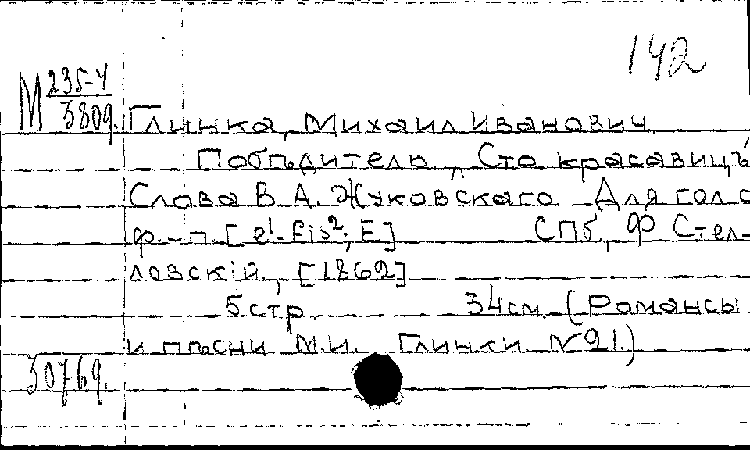 142
М 235-4
3809.
Глинка, Михаил Иванович
Побѣдитель. „Сто красавицъ“
Слова В. А. Жуковскаго. Для гол с
ф-п. [e¹-fis²; E] СПб, Ф Стел-
ловскій, [1862]
5 стр. 34 см. (Романсы
и пѣсни М. И. Глинки № 21.)
30769.